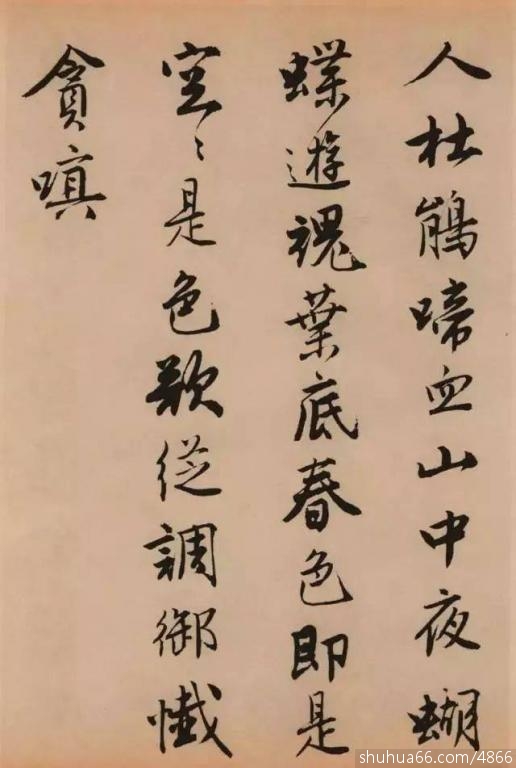 人杜鵑啼血山中夜蝴
蝶遊魂葉底春色即是
空〻是色欲從調御懺
貪嗔
shuhua66.com/4866